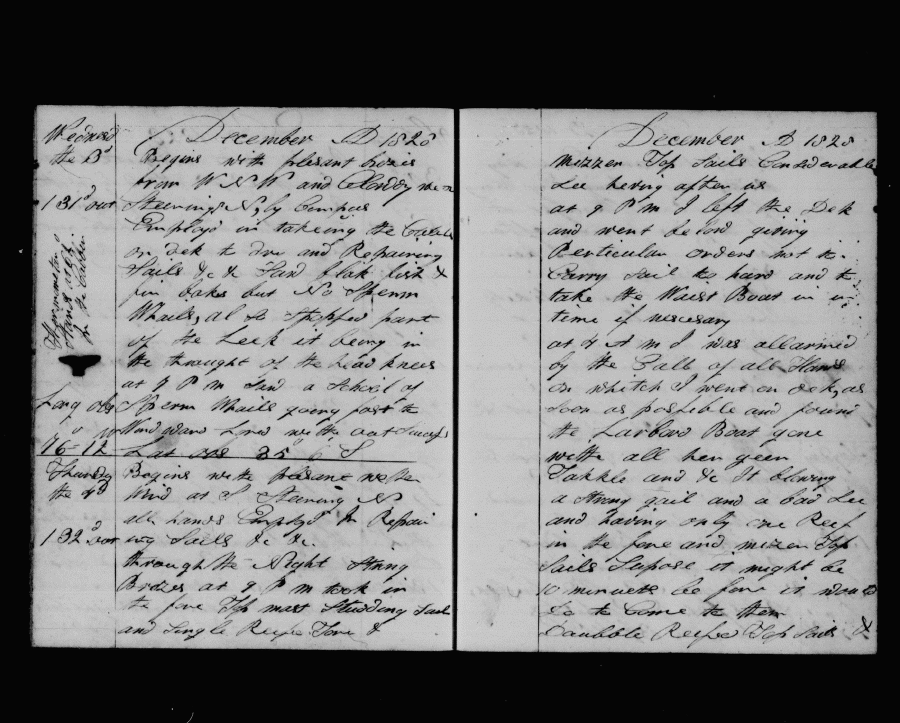 December AD 1828
Wednesd
the 3d
Begins with plesant brezes
from W N W and Clowdy
131d out
Steering N by Compas
Employd in takeing the
on dek to dry and Repairing
Sails &c & Sand blak fish &
fin baks but No Sperm
Whails, al so Stopped part
of the Leek it being in
the throught of the head knees
at 9 P m Sand a School of
Long obs
Sperm Whails going fast to
Wind ward Lowd withe out Sucesss
76-12
Lat obs 35 S
Thursday
the 4d
Begins with plesant wether
Wind at S Steering N
all hands Employd In Repair
132d out
ing Sails &c &c.
through the Night Strong
Brezes at 9 P m took in
the fore Top mast Studding Sail
and Single Reefe Fore &
Thermometer
Stands at
in the Cabbin
December AD 1828
Mizzen Top Sails Considerable
See having after us
at 9 P m I left the Dek
and went be low giving
Perticular orders not to
Carry Sail to hard and to
take the Waist Boat in in
time if nescesary
at 4 A m I was allarmed
by the Call of all Hands
on whitch I went on dek, as
Soon as possible and found
the Larbord Boat gone
withe all her geer
Takkle and &c It blowing
a Strong gail and a bad See
and having only one Reef
in the fore and mizen Top
Sails Supose it might be
10 minuets be fore it
So to Come to them
Daubble Reefed Top Sails &